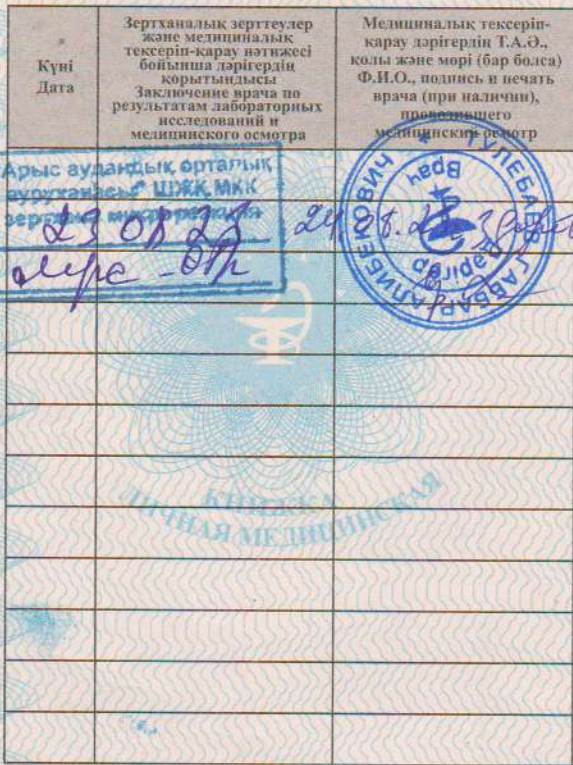 Күні
Дата
Зертханалық зерттеулер
және медициналық
тексеріп-қарау нәтижесі
бойынша дәрігердің
қорытындысы
Заключение врача по
результатам лабораторных
исследований и
медицинского осмотра
Медициналық тексеріп-
қарау дәрігердің Т.А.Ә.,
қолы және мөрі (бар болса)
Ф.И.О., подпись и печать
врача (при наличии),
проводившего
медицинский осмотр
Арыс аудандық орталық
ауруханасы" ШЖҚ МКК
23 08 23
ТУЛЕБАЕВ ГАББАР АЛИБЕКОВИЧ
Врач
Дәрігер
КНИЖКА
ЛИЧНАЯ МЕДИЦИНСКАЯ